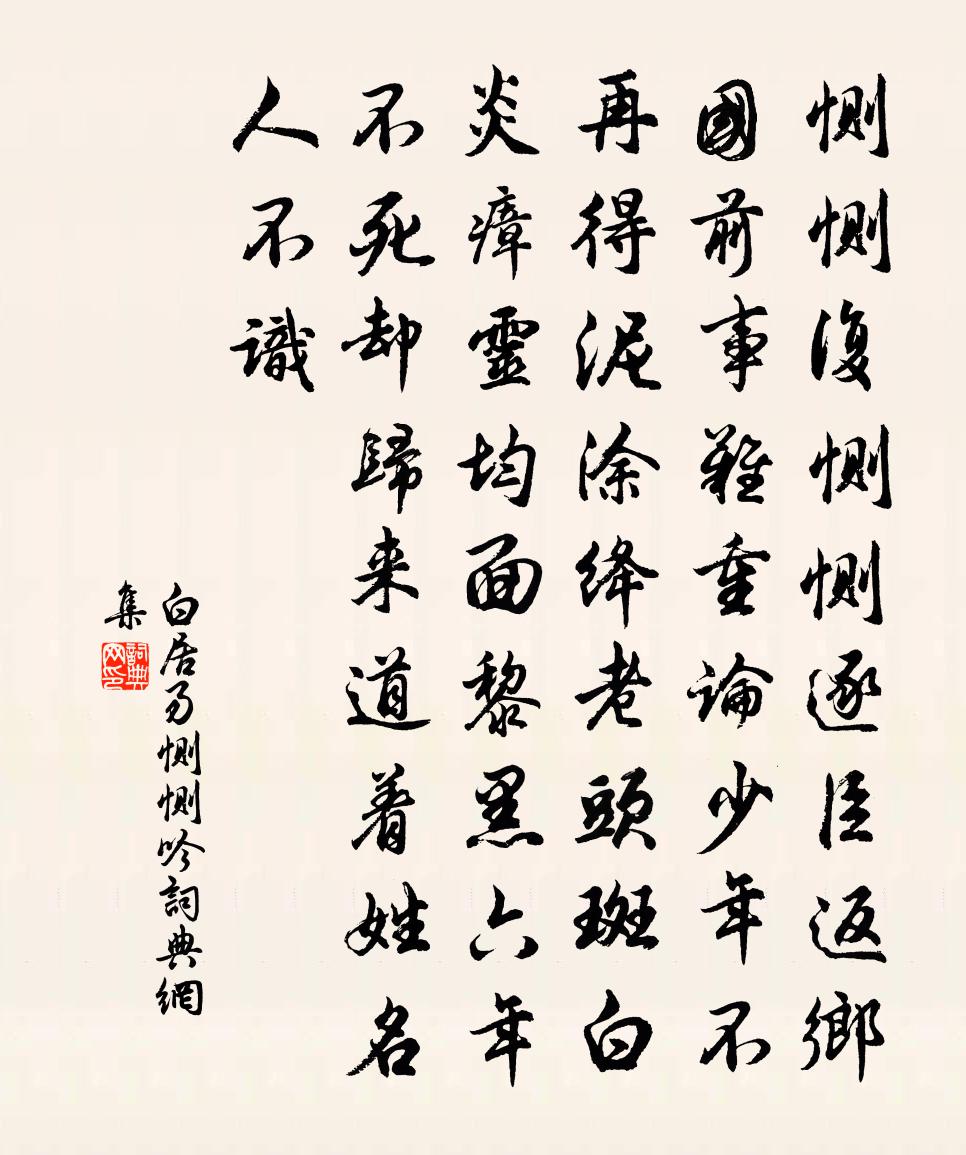 惻惻復惻惻逐臣返鄉
國前事難重論少年不
再得泥涂絳老頭斑白
炎瘴靈均面黎黑六年
不死却歸来道着姓名
人不識
白居易惻惻吟詞典網
集
詞典网印